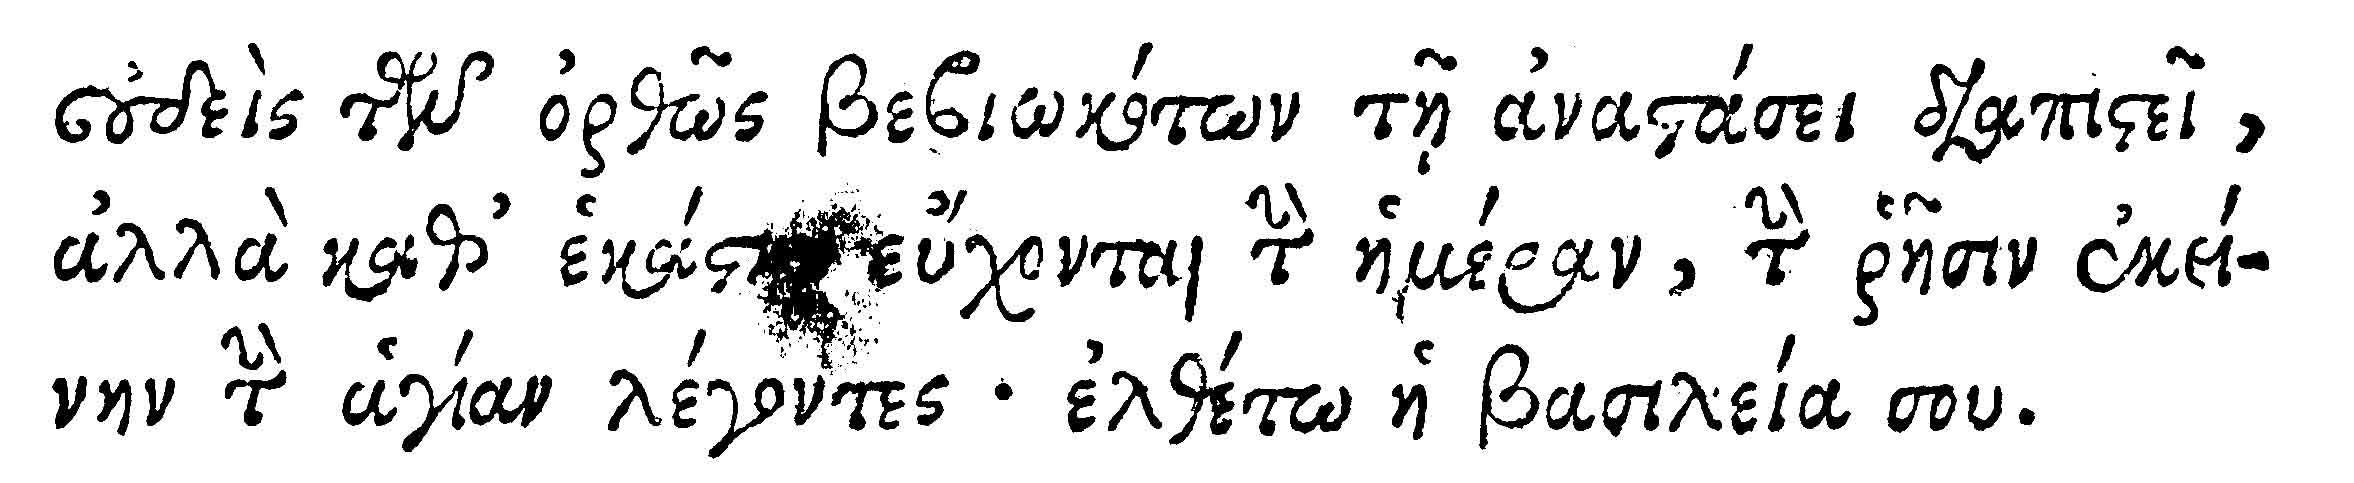 οὐδεὶς τῶν ὀρθῶς βεβιωκότων τῇ ἀναστάσει διαπιστεῖ,
ἀλλὰ καθ’ εὔχονται τὴν ἡμέραν, τὴν ῥῆσιν ἐκεί-
νην τὴν ἁγίαν λέγοντες· ἐλθέτω ἡ βασιλεία σου.